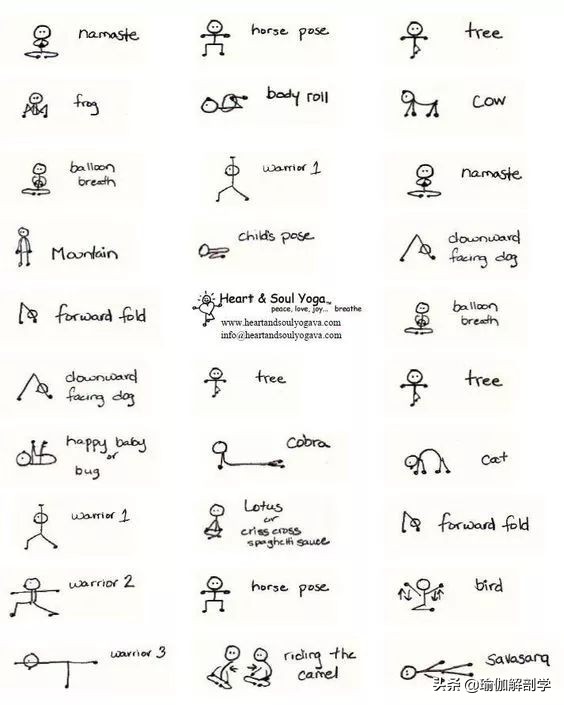 namaste
horse pose
tree
frog
body roll
cow
balloon
breath
warrior 1
namaste
Mountain
child's pose
downward
facing dog
forward fold
Heart & Soul Yoga™
peace, love, joy... breathe
www.heartandsoulyogava.com
info@heartandsoulyogava.com
balloon
breath
downward
facing dog
tree
tree
happy baby
or
bug
cobra
cat
warrior 1
Lotus
or
criss cross
spaghetti sauce
forward fold
warrior 2
horse pose
bird
warrior 3
riding the
camel
savasana
头条 @瑜伽解剖学